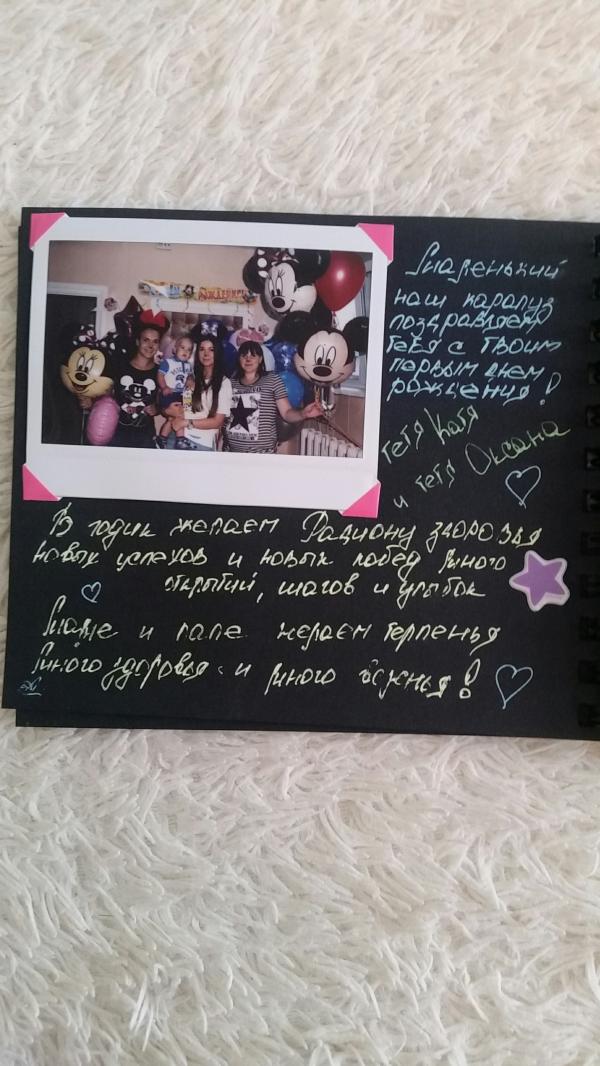 Маленький
наш карапуз
поздравляем
тебя с твоим
первым днем
рождения!
тетя Катя
и тетя Оксана
В годик желаем Радиону здоровья
новых успехов и новых побед много
открытий, шагов и улыбок
Маме и папе желаем терпенья
Много здоровья и много везенья!